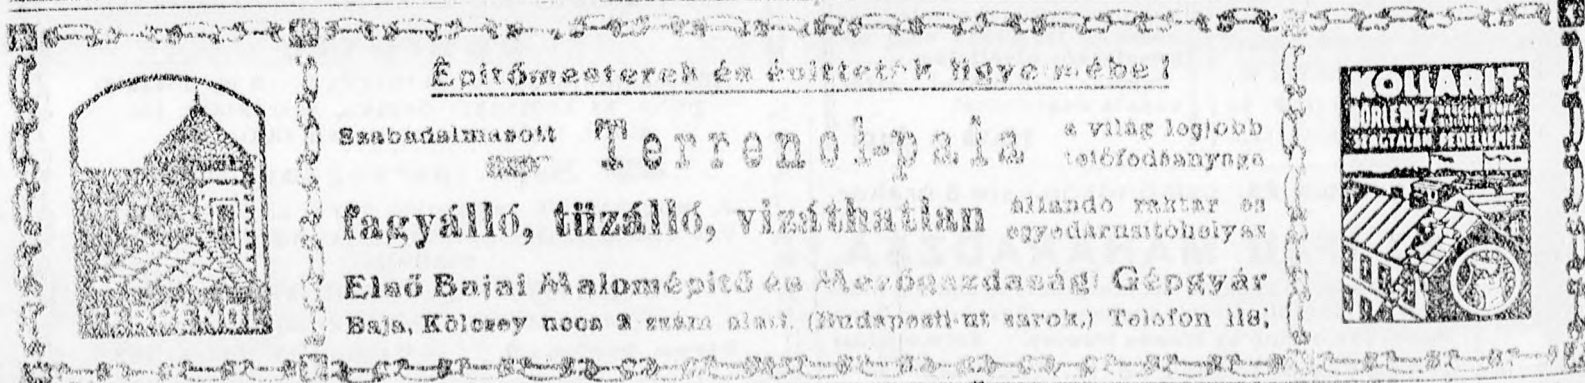 Építőmesterek és építtetők figyelmébe!
Szabadalmasott Terrenol-pala a világ legjobb
tetőfedőanyaga
fagyálló, tűzálló, vízáthatlan állandó raktár és
egyedárusítóhelyas
Első Bajai Malomépítő és Mezőgazdasági Gépgyár
Baja, Kölcsey ucca 2 szám alatt. (Budapesti-ut sarok.) Telefon 118.
TERRENOL
KOLLARIT-
BŐRLEMEZ
SZAGTALAN FEDÉLLEMEZ